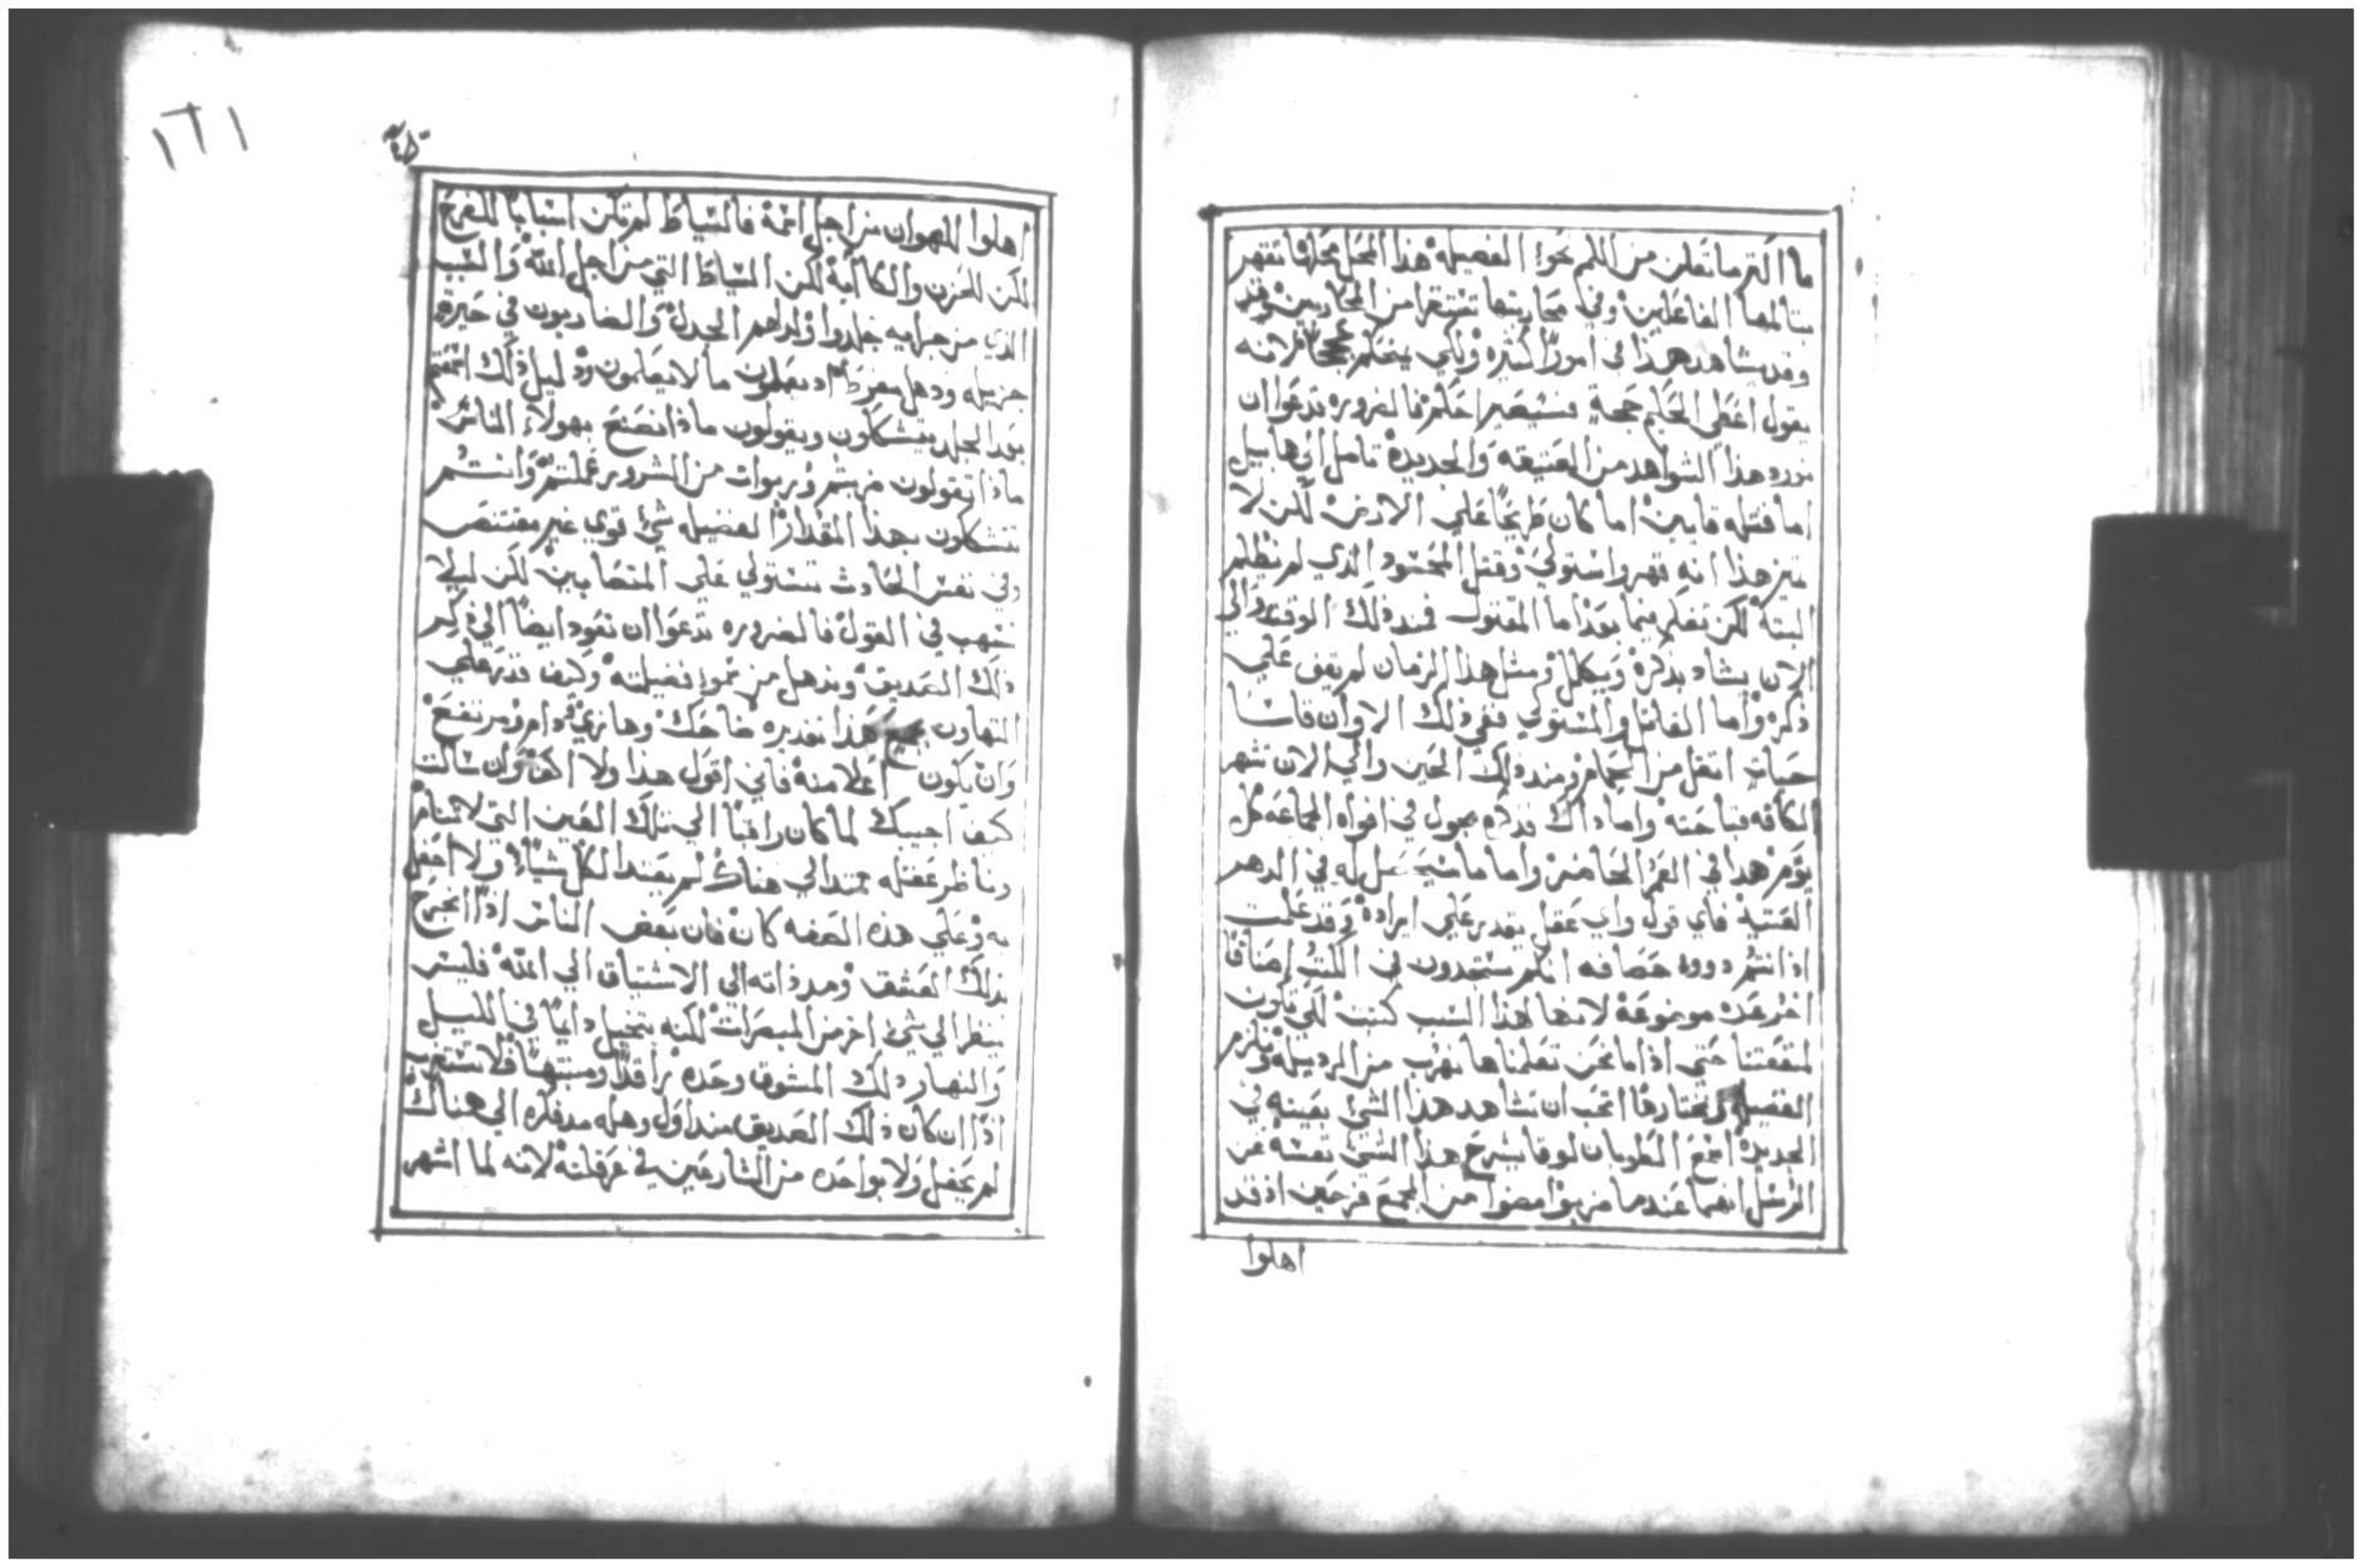 ما اكتر ما تعلن من اللم نحوا الفضيله هذا المحل محلها تقهر
بتالمها الفاعلين وفي محاربتها تستقر من المحاربين وقد
وقد يشاهد هذا في امورًا كثيره ولكي يتعلم لانه
يقول اعطي الحكيم حجة فسيصير احكم فالضروره تدعوا ان
نورد هذا الشواهد من العتيقه والجديدة تامل الي هابيل
اما قتله قايين اما كان طريحًا علي الارض لكن لا
هذا انه قهر واستولي وقتل المحسود الذي لم يظلم
البتة لكن تفكر فيما بعد اما المقتول فمند ذلك الوقت والي
الان يشاد بذكره ويكلل ومثل هذا الزمان لم يقف علي
ذكره واما القاتل والمستولي ففي ذلك الاوان قاسا
حياة اثقل من الحمام ومند ذلك الحين والي الان تشهر
الكافه قباحته واما داك فذكره يجول في افواه الجماعه كل
يوم هدا في العمر الحاضر واما ما سيحصل له في الدهر
العتيد فاي قول واي عقل يقدر علي ايراده وقد علمت
اذ انتم دووه حصافه انكم ستجدون في الكتب اصنافًا
اخر عده موضوعة لانها لهذا السبب كتبت لكي تكون
لمنفعتنا حتي اذا ما نحن تعلمناها نهرب من الرديله ونلزم
الفضيله ونختارها اتحب ان تشاهد هذا الشي بعينه في
الجديدة اسمع الطوبان لوقا يشرح هذا الشي نفسه عن
الرسل انهما عندما ضربوا مضوا من المجمع فرحين اذ قد
اهلوا
١٦١
اهلوا للهوان من اجل اسمه فالسياط لم تكن اسبابًا للفرح
لكن للحزن والكاابة لكن السياط التي من اجل الله والسبب
الذي من جرايه جلدوا ولد لهم الجدل والضاربون في حيرةٍ
جزيله ودهل مفرط اد يعملون ما لا يعلمون ودليل ذلك انهم
بعد الجلد يتشكاون ويقولون ماذا نصنع بهولاء الناس
ماذا تقولون ضربتم وربوات من الشرور عملتم وانتم
تتشكاون بهذا المقدار الفضيله شي قوي غير مقتنص
وفي نفس الحادث تستولي علي المتصابين لكن ليلا
نسهب في القول فالضروره تدعوا ان نعود ايضًا الي ذكر
ذلك الصديق وندهل من نموا فضيلته وكيف قدر علي
التهاون بجميع هذا
وان يكون اعلا منه فاني اقول هذا ولا اكف وان سالت
كيف اجيبك لما كان راقبًا الي تلك العين التي لا تنام
وناظر عقله ممتدا الي هناك لم يعتد الكل شياء ولا احفل
به وعلي هذه الصفه كان فان بعض الناس اذا انجرح
بذلك العشق ومد ذاته الي الاشتياق الي الله فليس
ينظر الي شي اخر من المبصرات لكنه يتخيل دايمًا في الليل
والنهار دلك المشوق وحده راقدًا ومنتبهًا فلا تستعجب
اذًا ان كان ذلك الصديق منداول وهله مد فكره الي هناك
لم يحفل ولا بواحده من الشارعين في عرقلته لانه لما اشهر